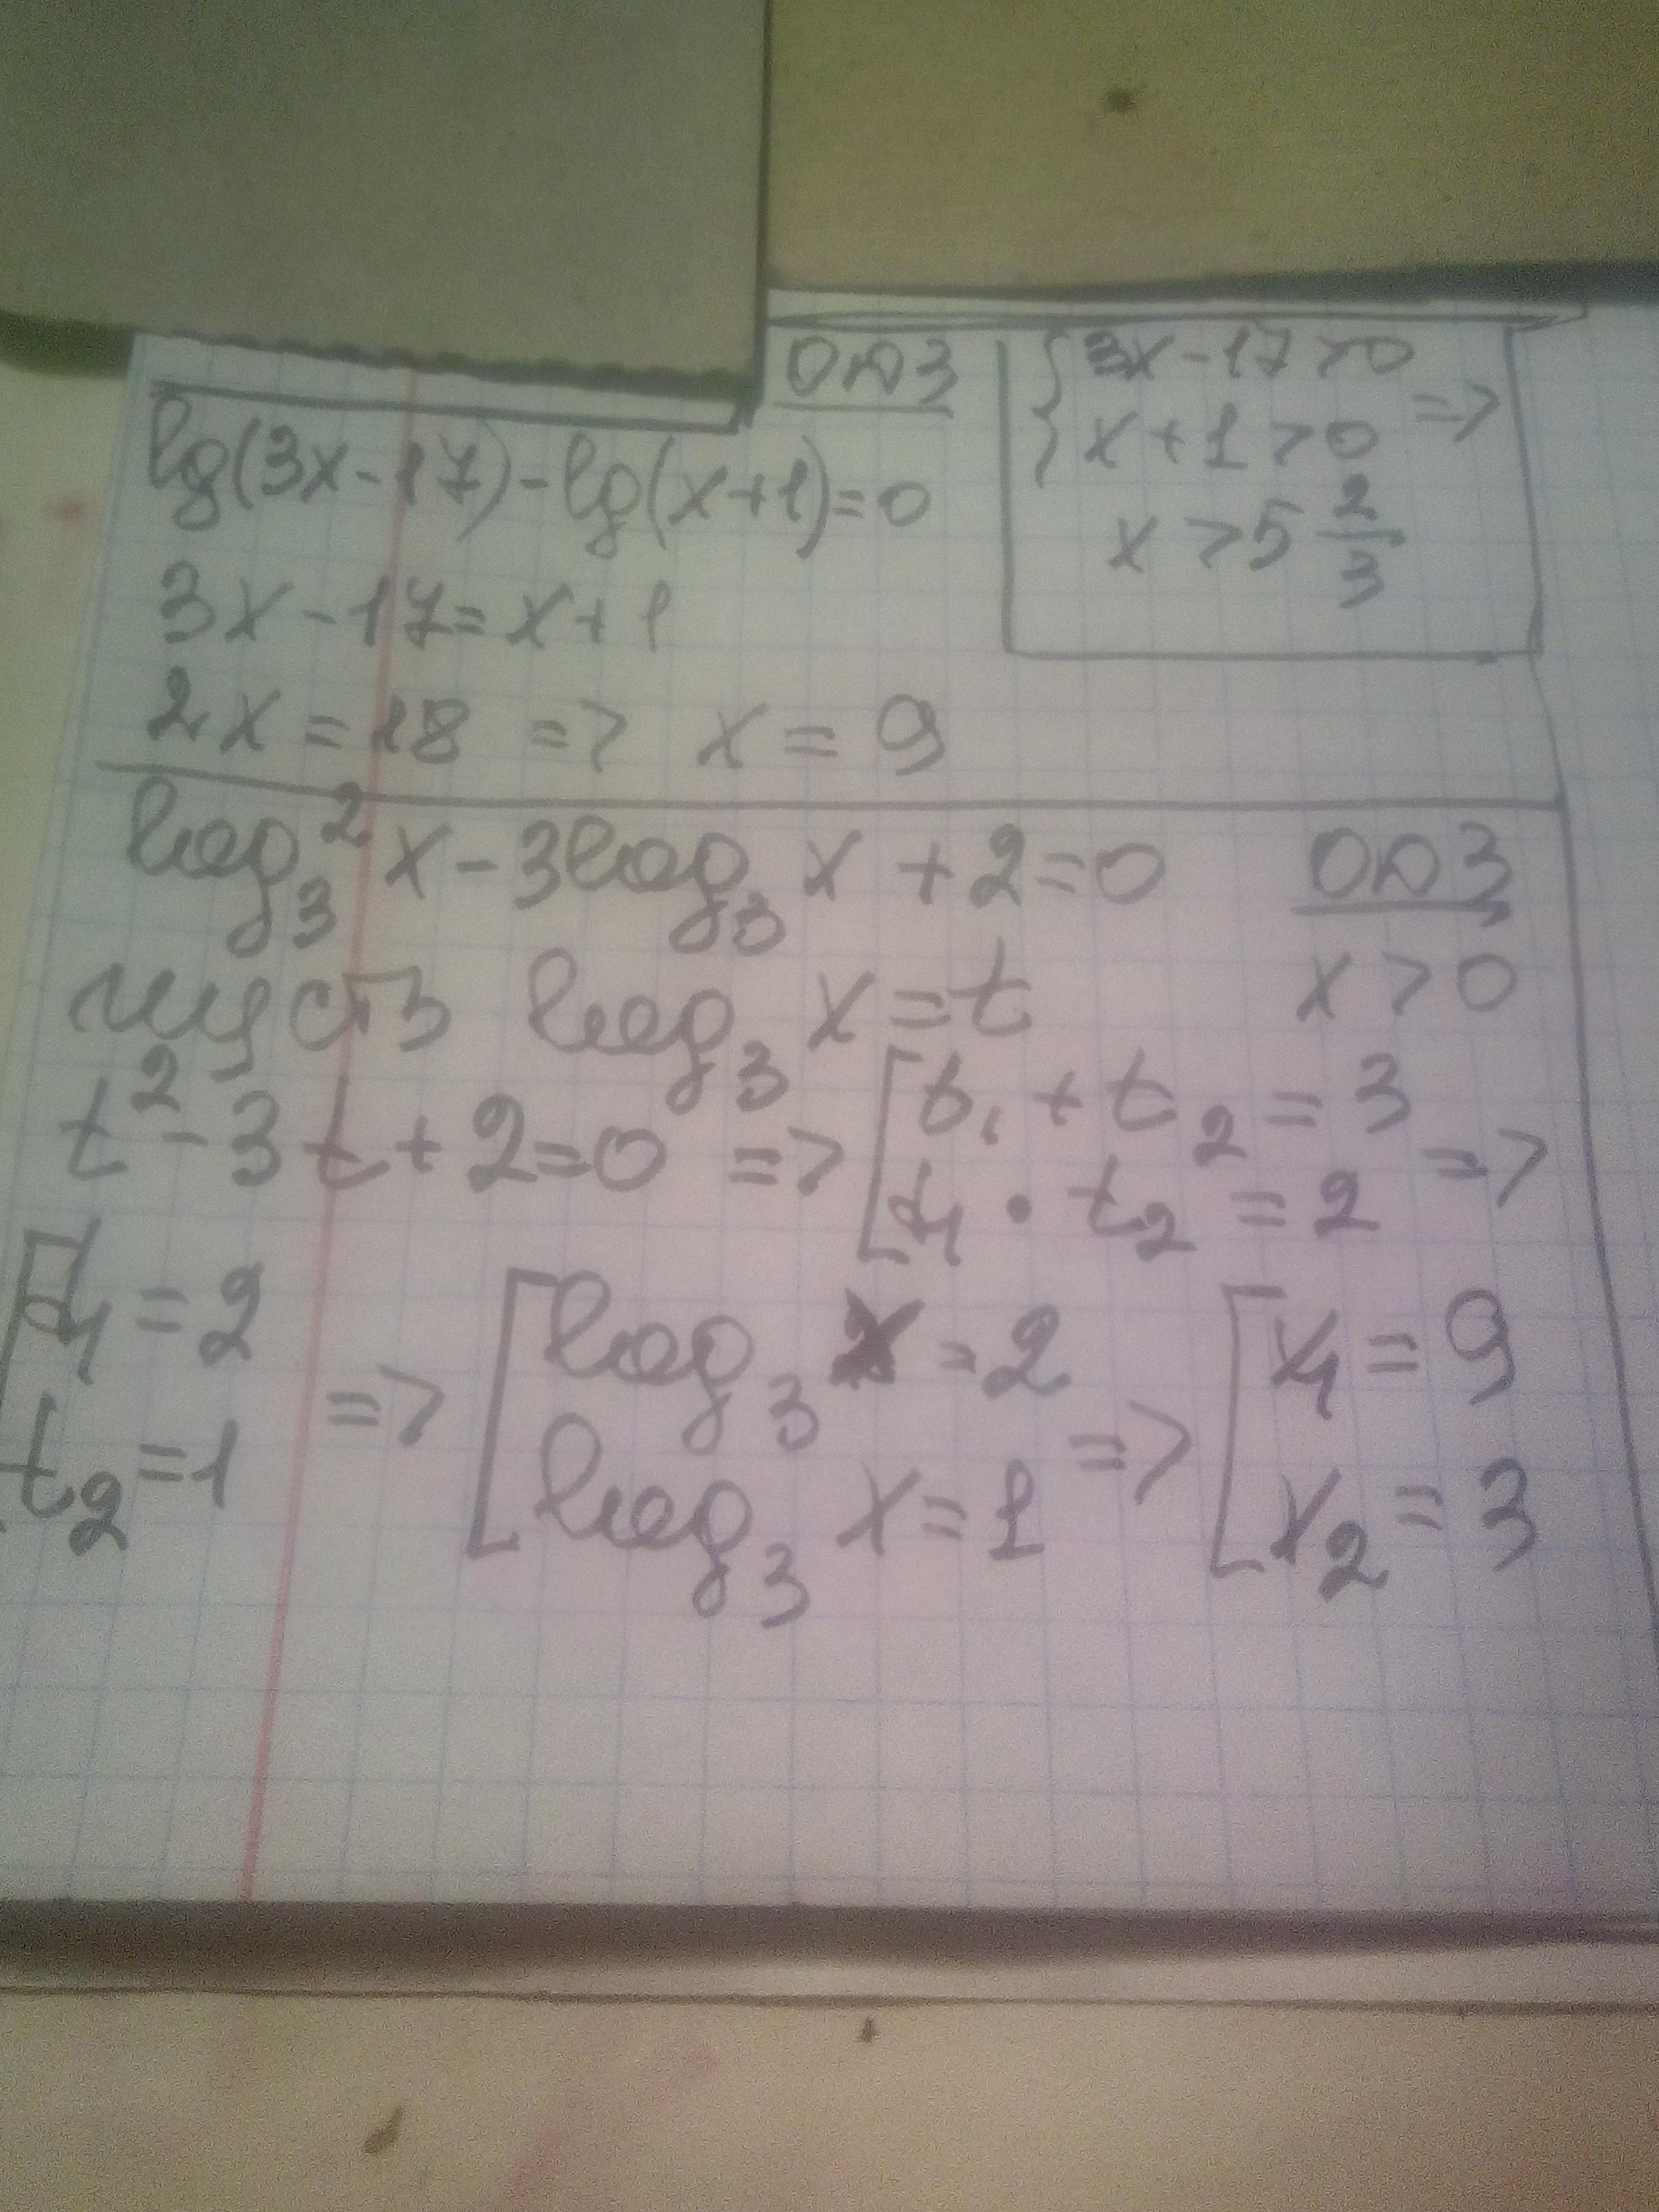 ОДЗ
{3x-17>0
x+1>0 =>
x>5 2/3
lg(3x-17)-lg(x+1)=0
3x-17=x+1
2x=18 => x=9
log₃²x-3log₃x+2=0 ОДЗ
пусть log₃x=t x>0
t²-3t+2=0 => [t₁+t₂=3
t₁·t₂=2 =>
[t₁=2
t₂=1 => [log₃x=2
log₃x=1 => [x₁=9
x₂=3